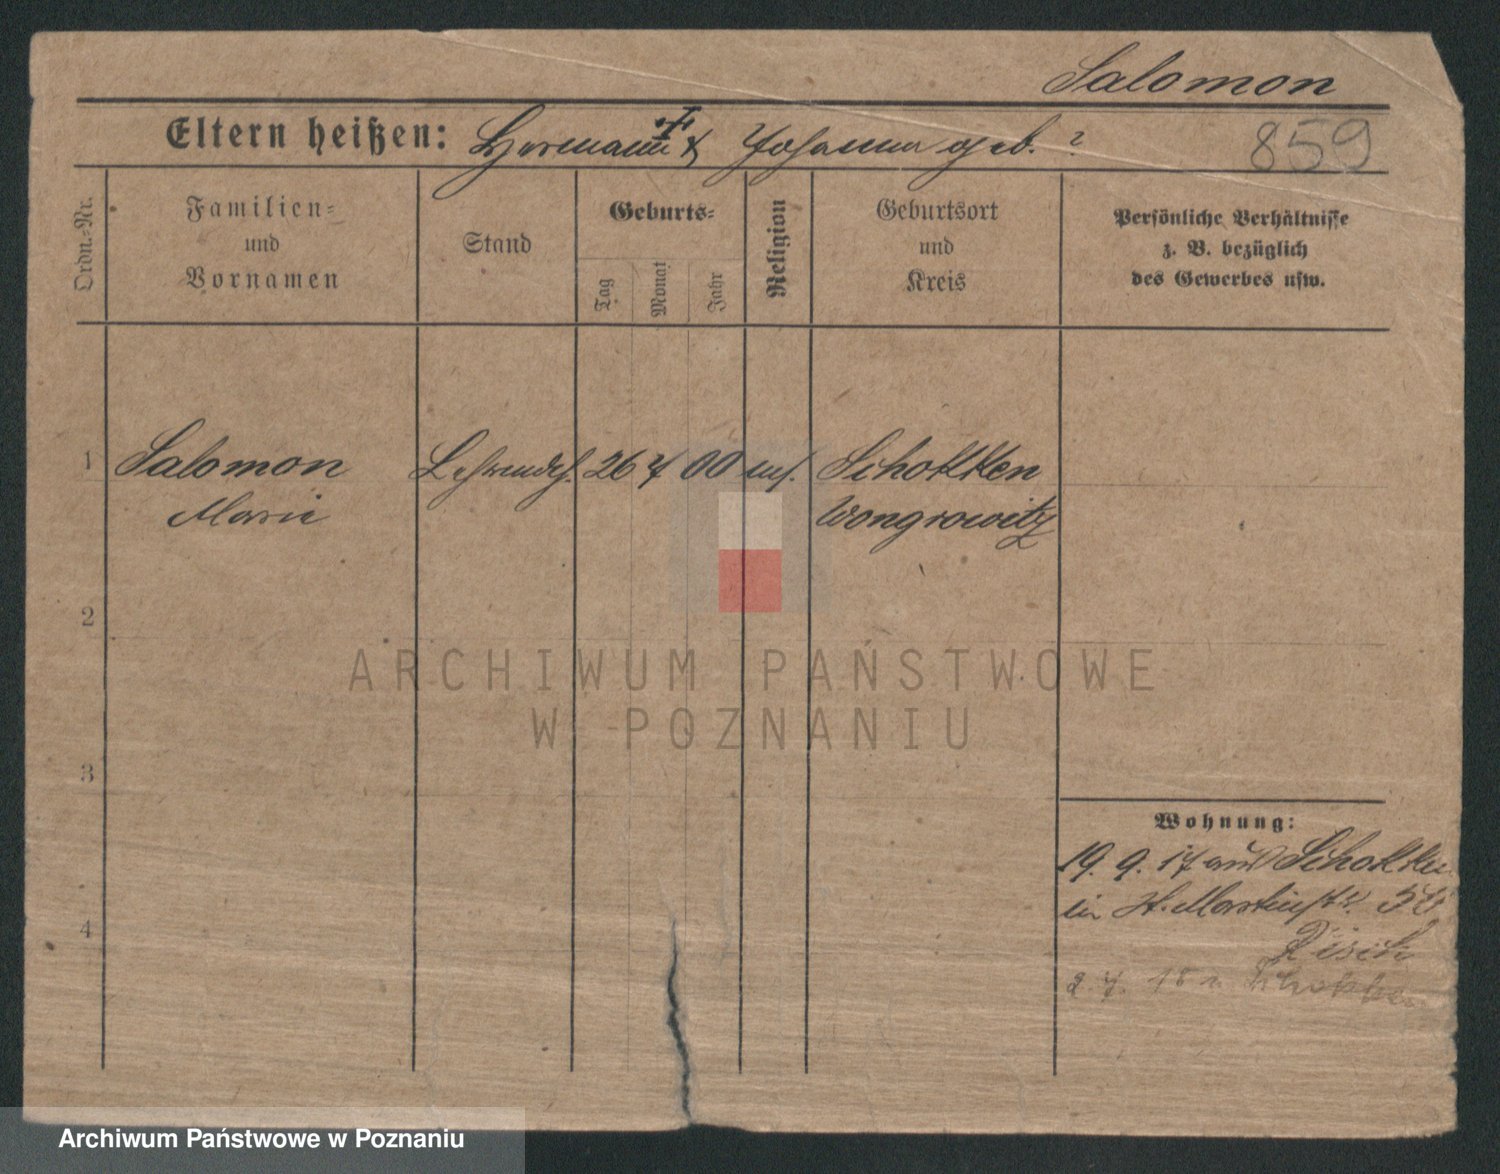 Salomon
Eltern heißen: Hermann & Johanna geb. ?
859
Ordn.-Nr.
Familien-
und
Vornamen
Stand
Geburts-
Tag
Monat
Jahr
Religion
Geburtsort
und
Kreis
Persönliche Verhältnisse
z. B. bezüglich
des Gewerbes usw.
1 Salomon 26 7 00 Schokken
Marie Wongrowitz
2
ARCHIWUM PAŃSTWOWE
W POZNANIU
3
Wohnung:
19. 9. 17 aus Schokken
in St. Martinstr.
4
2. 7. 18 n. Schokken
Archiwum Państwowe w Poznaniu